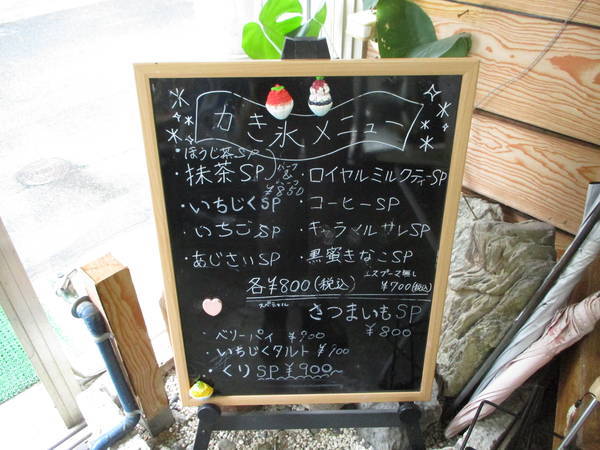 かき氷メニュー
・ほうじ茶SP
・抹茶SP
¥850
・ロイヤルミルクティーSP
・いちじくSP
・コーヒーSP
・いちごSP
・キャラメルサレSP
・あじさいSP
・黒蜜きなこSP
各¥800(税込)
エスプーマ無し
¥700(税込)
スペシャル
さつまいもSP
¥800
・ベリーパイ ¥900
・いちじくタルト ¥900
・くりSP ¥900